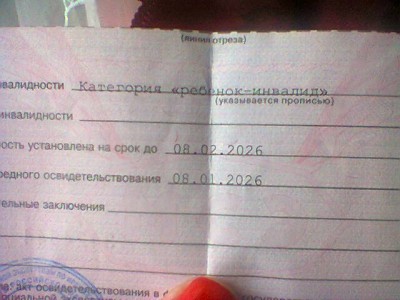 (линия отреза)
валидности Категория «ребенок-инвалид»
(указывается прописью)
инвалидности
ость установлена на срок до 08.02.2026
редного освидетельствования 08.01.2026
тельные заключения
акт освидетельствования в